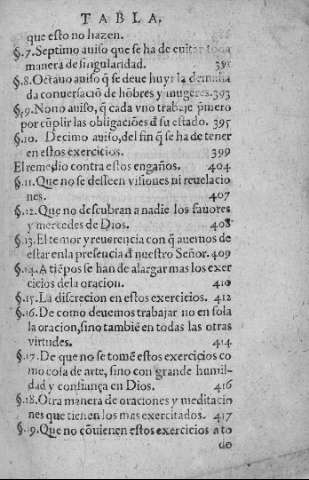 TABLA.
que esto no hazen.
§.7. Septimo auiso que se ha de euitar toda
manera de singularidad. 391
§.8. Octauo auiso q̃ se deue huyr la demasia
da conuersaciō de hōbres y mugeres. 393
§.9. Nono auiso, q̃ cada vno trabaje p̃mero
por cũplir las obligaciōes d̃ su estado. 395
§.10. Decimo auiso, del fin q̃ se ha de tener
en estos exercicios. 399
El remedio contra estos engaños. 404
§.11. Que no se desseen visiones ni reuelacio
nes. 407
§.12. Que no descubran a nadie los fauores
y mercedes de Dios. 408
§.13. El temor y reuerencia con q̃ auemos de
estar en la presencia d̃ nuestro Señor. 409
§.14. A tiẽpos se han de alargar mas los exer
cicios de la oracion. 410
§.15. La discrecion en estos exercicios. 412
§.16. De como deuemos trabajar no en sola
la oracion, sino tambiẽ en todas las otras
virtudes. 414
§.17. De que no se tomẽ estos exercicios co
mo cosa de arte, sino con grande humil-
dad y confiança en Dios. 416
§.18. Otra manera de oraciones y meditacio
nes que tienen los mas exercitados. 417
§.19. Que no cōuienen estos exercicios a to
do